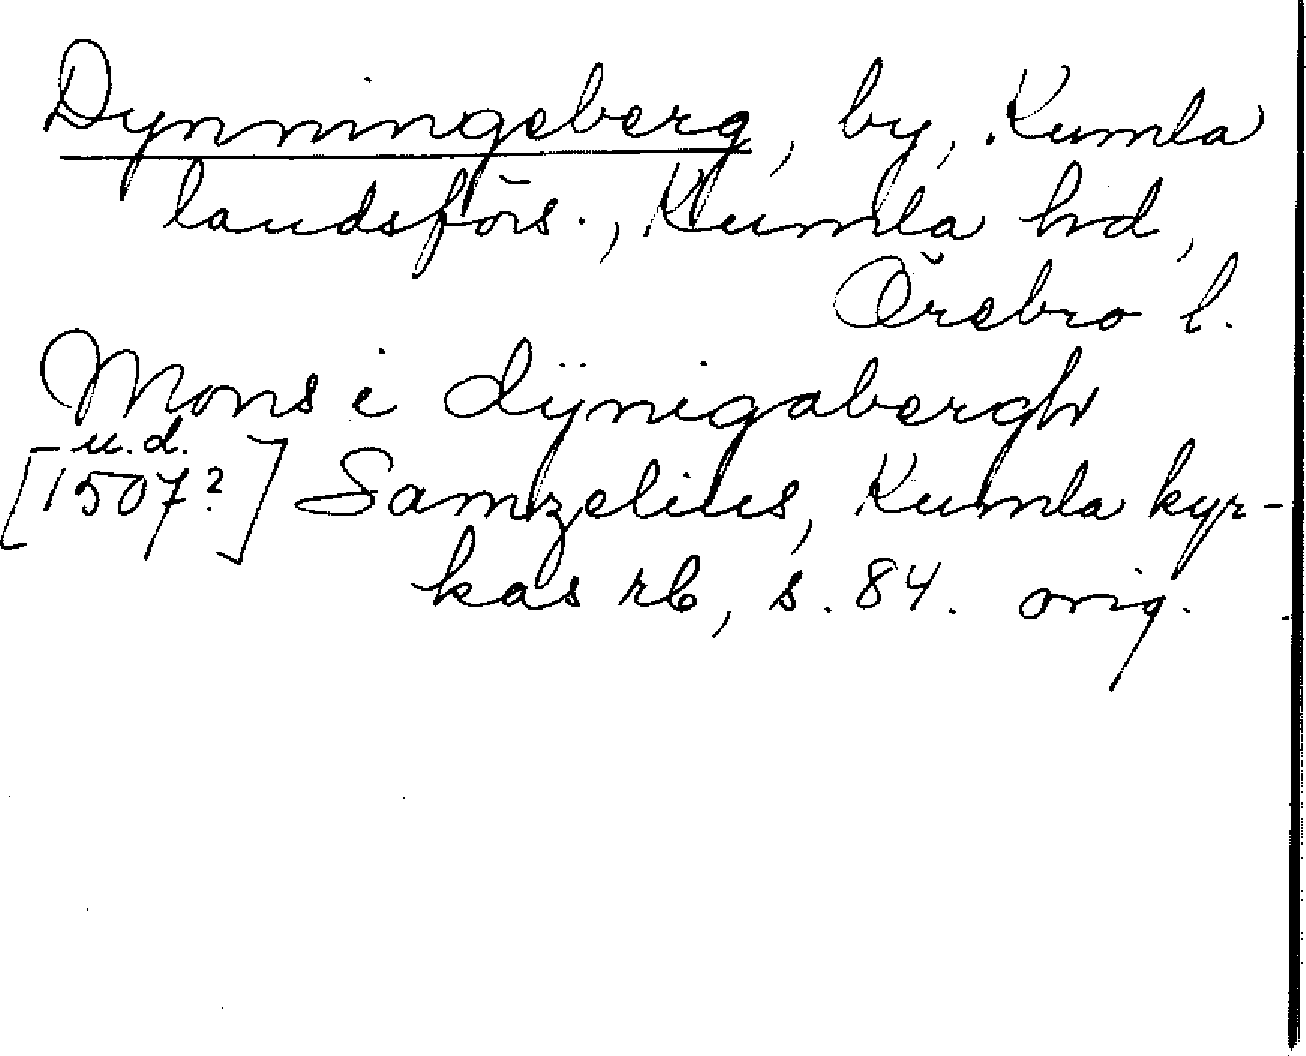 Dynningeberg, by, Kumla
landsförs., Kumla hd,
Örebro l.
Mons i dÿnigabergh
u.d.
[1507?] Samzelius, Kumla kyr-
kas rb, s. 84. orig.